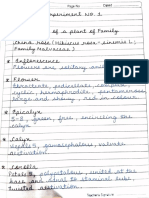 Page No.
Date:
Experiment No. 1
of a plant of Family
China rose (Hibiscus rosa - sinensis),
Family Malvaceae)
* Inflorescence
Flowers are solitary and
* Flower
large and showy, red in colour.
* Epicalyx
5-8, green, free, encircling the
calyx.
* Calyx
Sepals 5, gamosepalous, valvate
aestivation.
* Corolla
Petals 5, polypetalous, united at the
base and adnate to staminal tube,
twisted aestivation.
Teacher's Signature